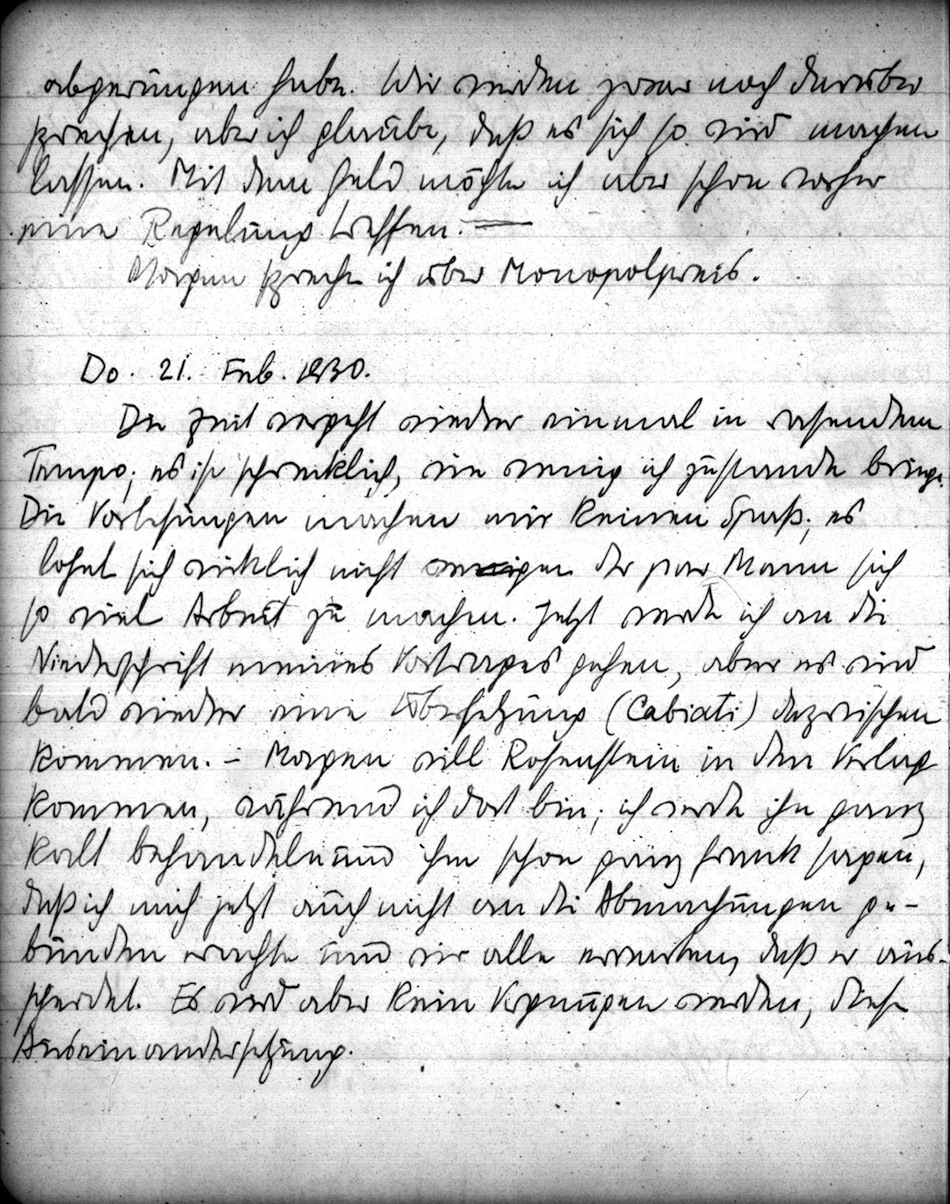 abgerungen habe. Wir werden zwar noch darüber
sprechen, aber ich glaube, daß es sich so wird machen
lassen. Mit dem Geld möchte ich aber schon vorher
eine Regelung treffen. —
Morgen spreche ich über Monopolpreis.
Do. 21. Feb. 1930.
Die Zeit vergeht wieder einmal in rasendem
Tempo; es ist schrecklich, wie wenig ich zustande bringe.
Die Vorlesungen machen mir keinen Spaß; es
lohnt sich wirklich nicht wegen der paar Mann sich
so viel Arbeit zu machen. Jetzt werde ich an die
Niederschrift meines Vortrages gehen, aber es wird
bald wieder eine Übersetzung (Cabiati) dazwischen
kommen. – Morgen will Rosenstein in den Verlag
kommen, während ich dort bin; ich werde ihn ganz
kalt behandeln und ihm schon ganz frank sagen,
daß ich mich jetzt auch nicht an die Abmachungen ge-
bunden erachte und wir alle erwarten, daß er aus-
scheidet. Es wird aber kein Vergnügen werden, diese
Auseinandersetzung.